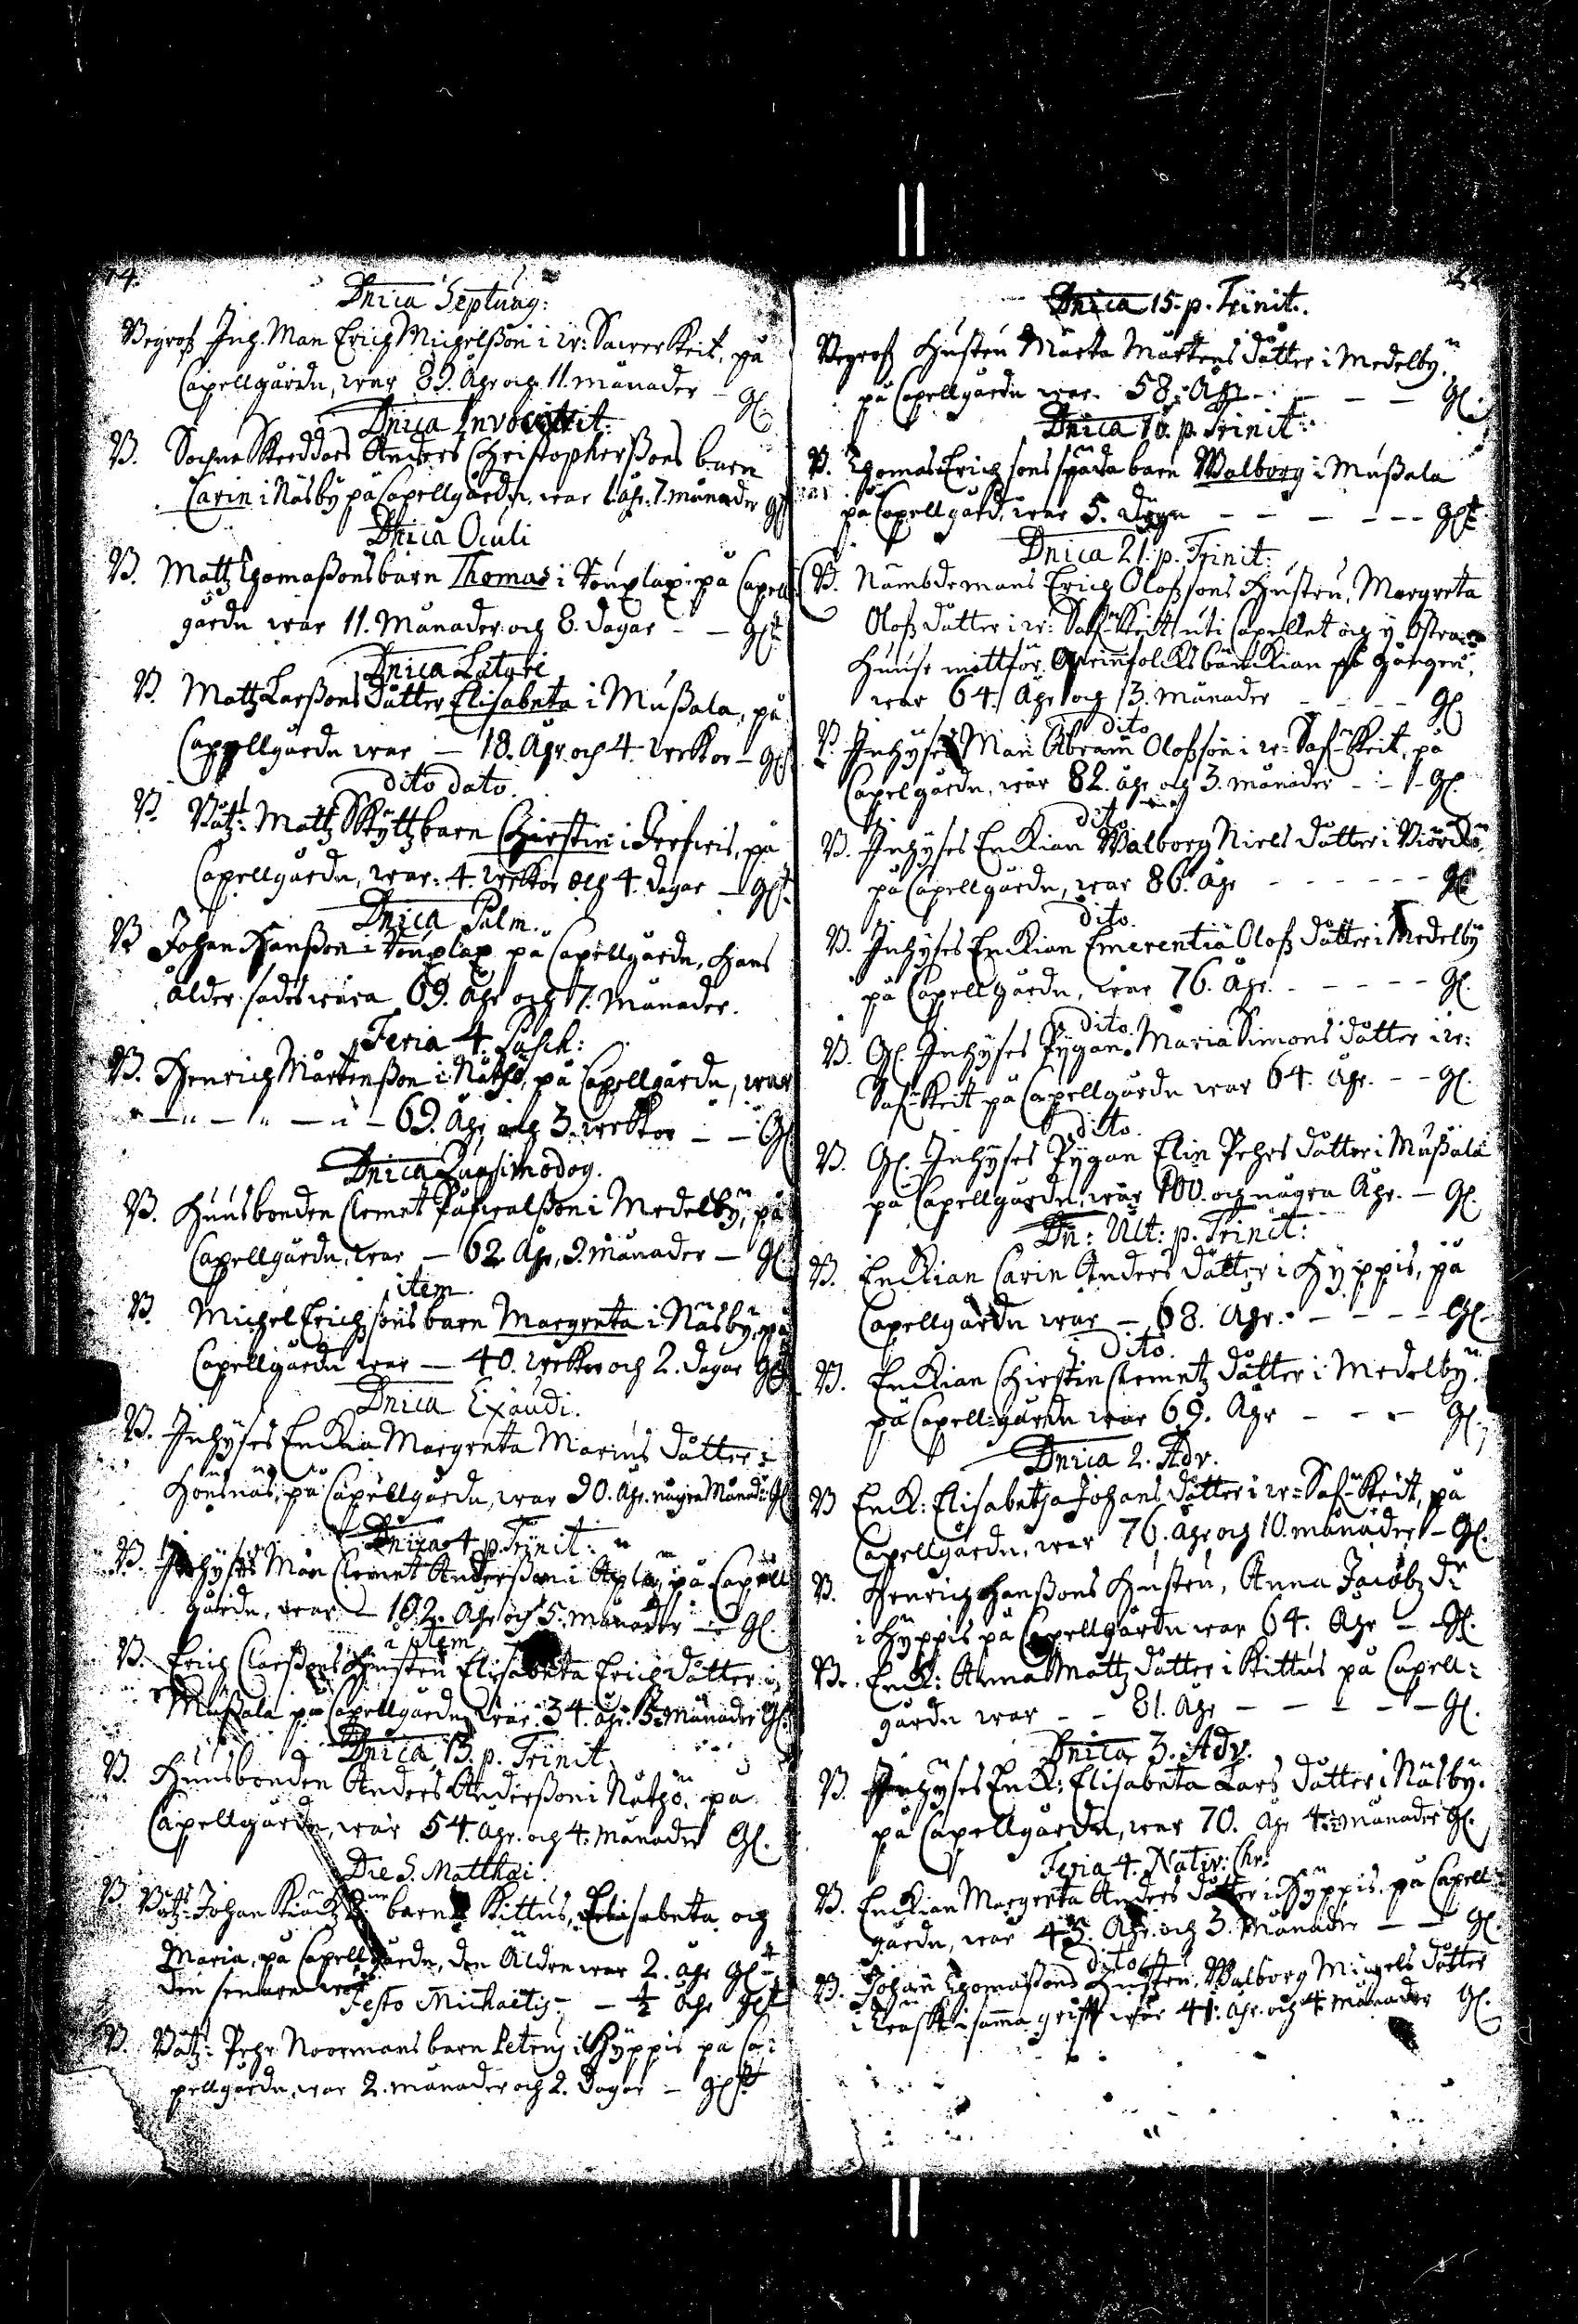 14.
Dnica Septuag:
Begrofs Inh. Man Erich Michelsson i w: Sawerkeit, på
Capellgårdn, war 89. Åhr och 11. månader - Gl.
Dnica Invocavit.
B. Sochne Skreddars Anders Christophersßons barn
Carin i Näsby på Capellgårdn, war 1 åhr. 7. månader Gl
Dnica Oculi
B. Mattz Thomaßons barn Thomas i Sonnlax på Capell
gårdn war 11. Månader och 8. dagar - - Glt
Dnica Lætare
B. Mattz Larßons dåtter Elisabeta i Mußala, på
Capellgårdn war - 18. Åhr och 4. weckor - Gl
dito dato.
B. Båtz: Mattz Skyttz barn Chirstin i Jerfwis, på
Capellgårdn, war: 4. weckor och 4. dagar - Glt.
Dnica Palm.
B Johan Hanßon i Tonplax på Capellgårdn, hans
ålder sades wara 69. Åhr och 7. Månader.
Feria 4. Pasch:
B. Henrich Mårtenßon i Nåthö, på Capellgårdn, war
- " - " - " - 69. Åhr och 3. weckor - - Gl
Dnica Quasimodog.
B. Huusbonden Clemet Påfwalßon i Medelby, på
Capellgårdn, war - 62 Åhr, 9. månader - Gl.
item.
B. Michel Erichsons barn Margreta i Näsby, på
Capellgårdn war - 40. weckor och 2. dagar Glt
Dnica Exaudi.
B. Inhyses Enckia Margreta Marcus dåtter i
Honsnäs, på Capellgårdn, war 90. Åhr. några Månad: Gl
Dnica 4 p. Trinit:
B. Inhyses Man Clemet Anderßon i Aplax, på Capell
gårdn, war - 102. Åhr och 5. månader - Gl.
item
B. Erich Clarßons Hustru Elisabeta Erichs dåtter i
Mußala på Capellgårdn war 34. åhr. 5. Månader Gl.
Dnica 13. p. Trinit
B. Huusbonden Anders Anderßon i Nåthö, på
Capellgårdn, war 54. Åhr. och 4. månader Gl.
Die S. Matthæi.
B. Båtz: Johan barn i Kittus, Elisabeta och
Maria, på Capellgårdn, den Äldre war 2. åhr Glt
den senare war - ½ Åhr Glt
Festo Michaelis
B. Båtz: Pehr Noormans barn Petrus i Hyppis på Ca:
pellgårdn, war 2. månader och 2. dagar - Glt
Dnica 15. p. Trinit.
Begrofs Hustru Märta Mårtens dåtter i Medelby
på Capellgårdn war 58. Åhr - - - - Gl.
Dnica 16. p. Trinit:
B. Thomas Erichsons späda barn Walborg i Mußala
på Capellgård, war 5. dygn - - - - - - Glt
Dnica 21. p. Trinit:
B. Nämbdemans Erich Olofssons Hustru, Margreta
Olofs dåtter i w: Saf-keitt uti Capellet och y östra
Huuse mittför Qwinfolcksbänckian på gången,
war 64. Åhr och 3. månader - - - - Gl.
dito
B. Inhyses Man Abram Olofsson i w: Saf-keit, på
Capelgårdn, war 82. åhr och 3. månader - - - Gl.
dito
B. Inhyses Enckian Walborg Niels dåtter i Biörckö,
på Capellgårdn, war 86. åhr - - - - - - Gl
dito.
B. Inhyses Enckian Emerentia Olofs dåtter i Medelby
på Capellgårdn, war 76. Åhr. - - - - - Gl.
dito.
B. Gl. Inhyses Pygan Maria Simons dåtter i w:
Saf-keit på Capellgårdn war 64. Åhr. - - Gl.
dito.
B. Gl. Inhyses Pygan Elin Pehrs dåtter i Mußala
på Capellgårdn, war 100. och några Åhr. - Gl.
Dn: Ult: p. Trinit:
B. Enckian Carin Anders dåtter i Hyppis, på
Capellgårdn war - 68. Åhr. - - - - Gl
Dito.
B. Enckian Chirstin Clemetz dåtter i Medelby.
på Capell:gårdn war 69. Åhr - - - Gl.
Dnica 2. Adv.
B Enck: Elisabetha Johans dåtter i w: Saf-keit, på
Capellgårdn, war 76. åhr och 10. månader - Gl.
B. Henrich Hanßons Hustru, Anna Jacobz dr
i Hyppis på Capellgårdn war 64. Åhr - - Gl.
B. Enck: Anna Mattz dåtter i Kittus på Capell:
gårdn war - - 81. Åhr - - - - - Gl.
Dnica 3. Adv.
B. Inhyses Enck: Elisabeta Lars dåtter i Näsby.
på Capellgårdn, war 70. Åhr 4. månader Gl.
Feria 4. Nativ: Chr:
B. Enckian Margreta Anders dåtter i Hyppis, på Capell
gårdn, war 43. Åhr. och 3. Månader - - Gl.
dito
B. Johan Thomaßons Hustru, Walborg Michels dåtter
i samma grift war 44. Åhr. och 4. månader Gl.